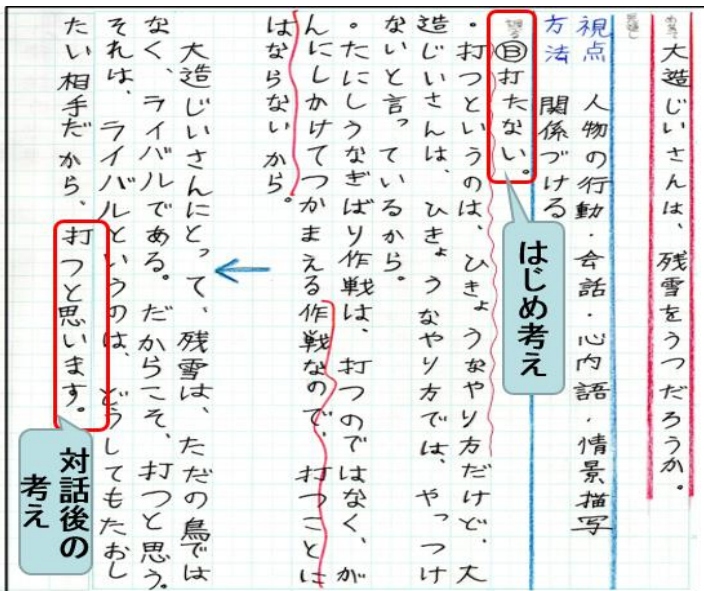 めあて
大造じいさんは、残雪をうつだろうか。
見通し
視点　人物の行動・会話・心内語・情景描写
方法　関係づける
㊐打たない。
・打つというのは、ひきょうなやり方だけど、大
造じいさんは、ひきょうなやり方では、やっつけ
ないと言っているから。
・たにしうなぎばり作戦は、打つのではなく、が
んにしかけてつかまえる作戦なので、打つことに
はならないから。
大造じいさんにとって、残雪は、ただの鳥では
なく、ライバルである。だからこそ、打つと思う。
それは、ライバルというのは、どうしてもたおし
たい相手だから、打つと思います。
はじめ考え
対話後の
考え